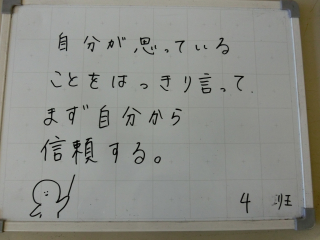 自分が思っている
ことをはっきり言って、
まず自分から
信頼する。
4 班